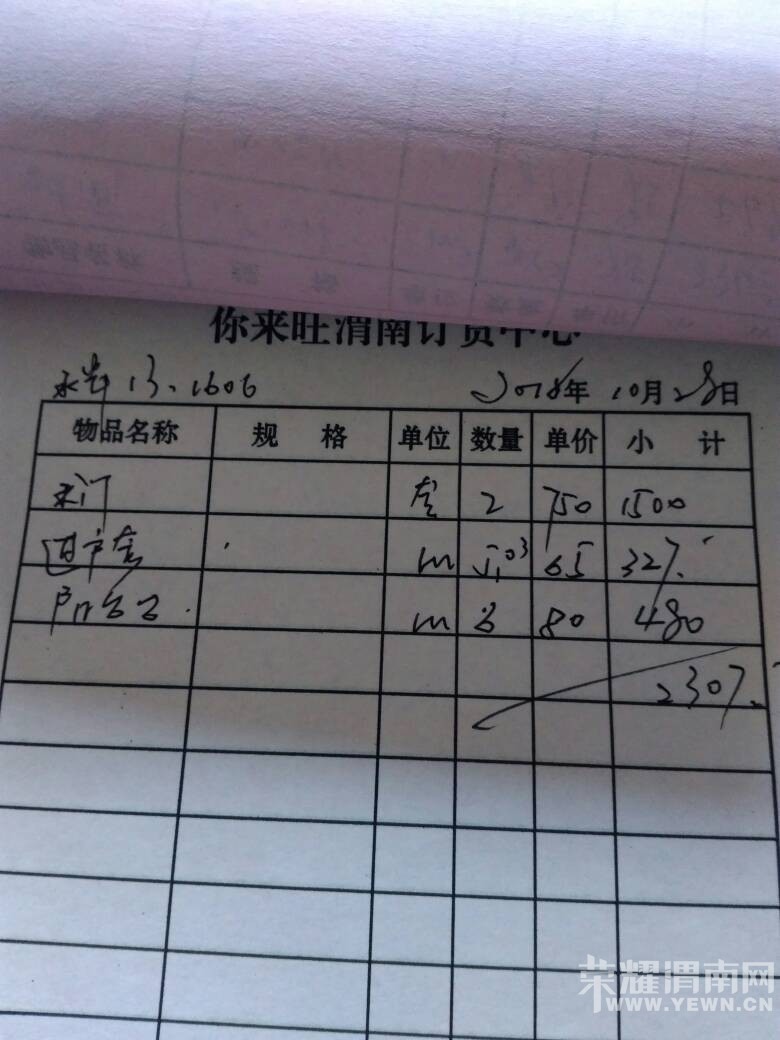 你来旺渭南订货中心
13.1606 2018年10月28日
物品名称 规格 单位 数量 单价 小计
木门 套 2 750 1500
过户套 m 5.03 65 327.
阳台 m 6 80 480
2307.
荣耀渭南网
WWW.YEWN.CN